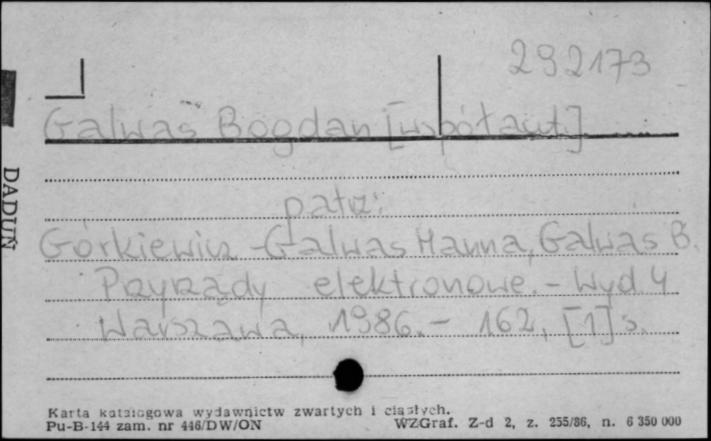 292173
Galwas Bogdan [współaut.]
patrz:
Górkiewicz-Galwas Hanna, Galwas B.
Przyrządy elektronowe. - Wyd 4
Warszawa, 1986. - 162, [1] s.
DADUŃ
Karta katalogowa wydawnictw zwartych i ciągłych.
Pu-B-144 zam. nr 446/DW/ON
WZGraf. Z-d 2, z. 255/86, n. 6 350 000